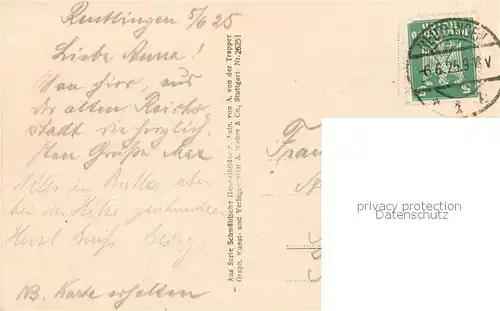 Reutlingen 5/6 25
Liebe Anna!
Von hier, aus
der alten Reichs
stadt die herzlich
sten Grüße Max
Alles in Butter, aber
bei der Hitze
Herzl. Gruß
NB. Karte erhalten
Aus Serie Schwäbische Aufn. von A. von der Trappen
Graph. Kunst- und Verlagsanstalt A. Weber & Co., Stuttgart. Nr. 26251
REUTLINGEN
-6.6.25.9-10V
Frau
privacy protection
Datenschutz